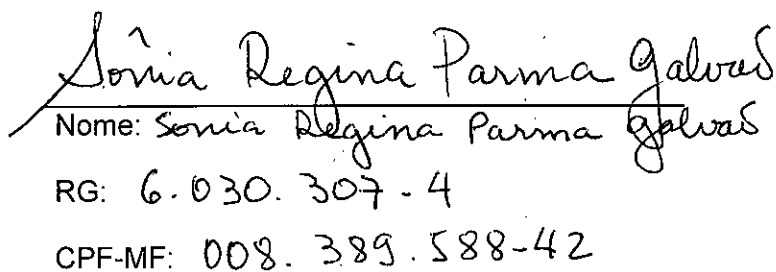 Sônia Regina Parma Galvão
Nome: Sonia Regina Parma Galvão
RG: 6.030.307-4
CPF-MF: 008.389.588-42